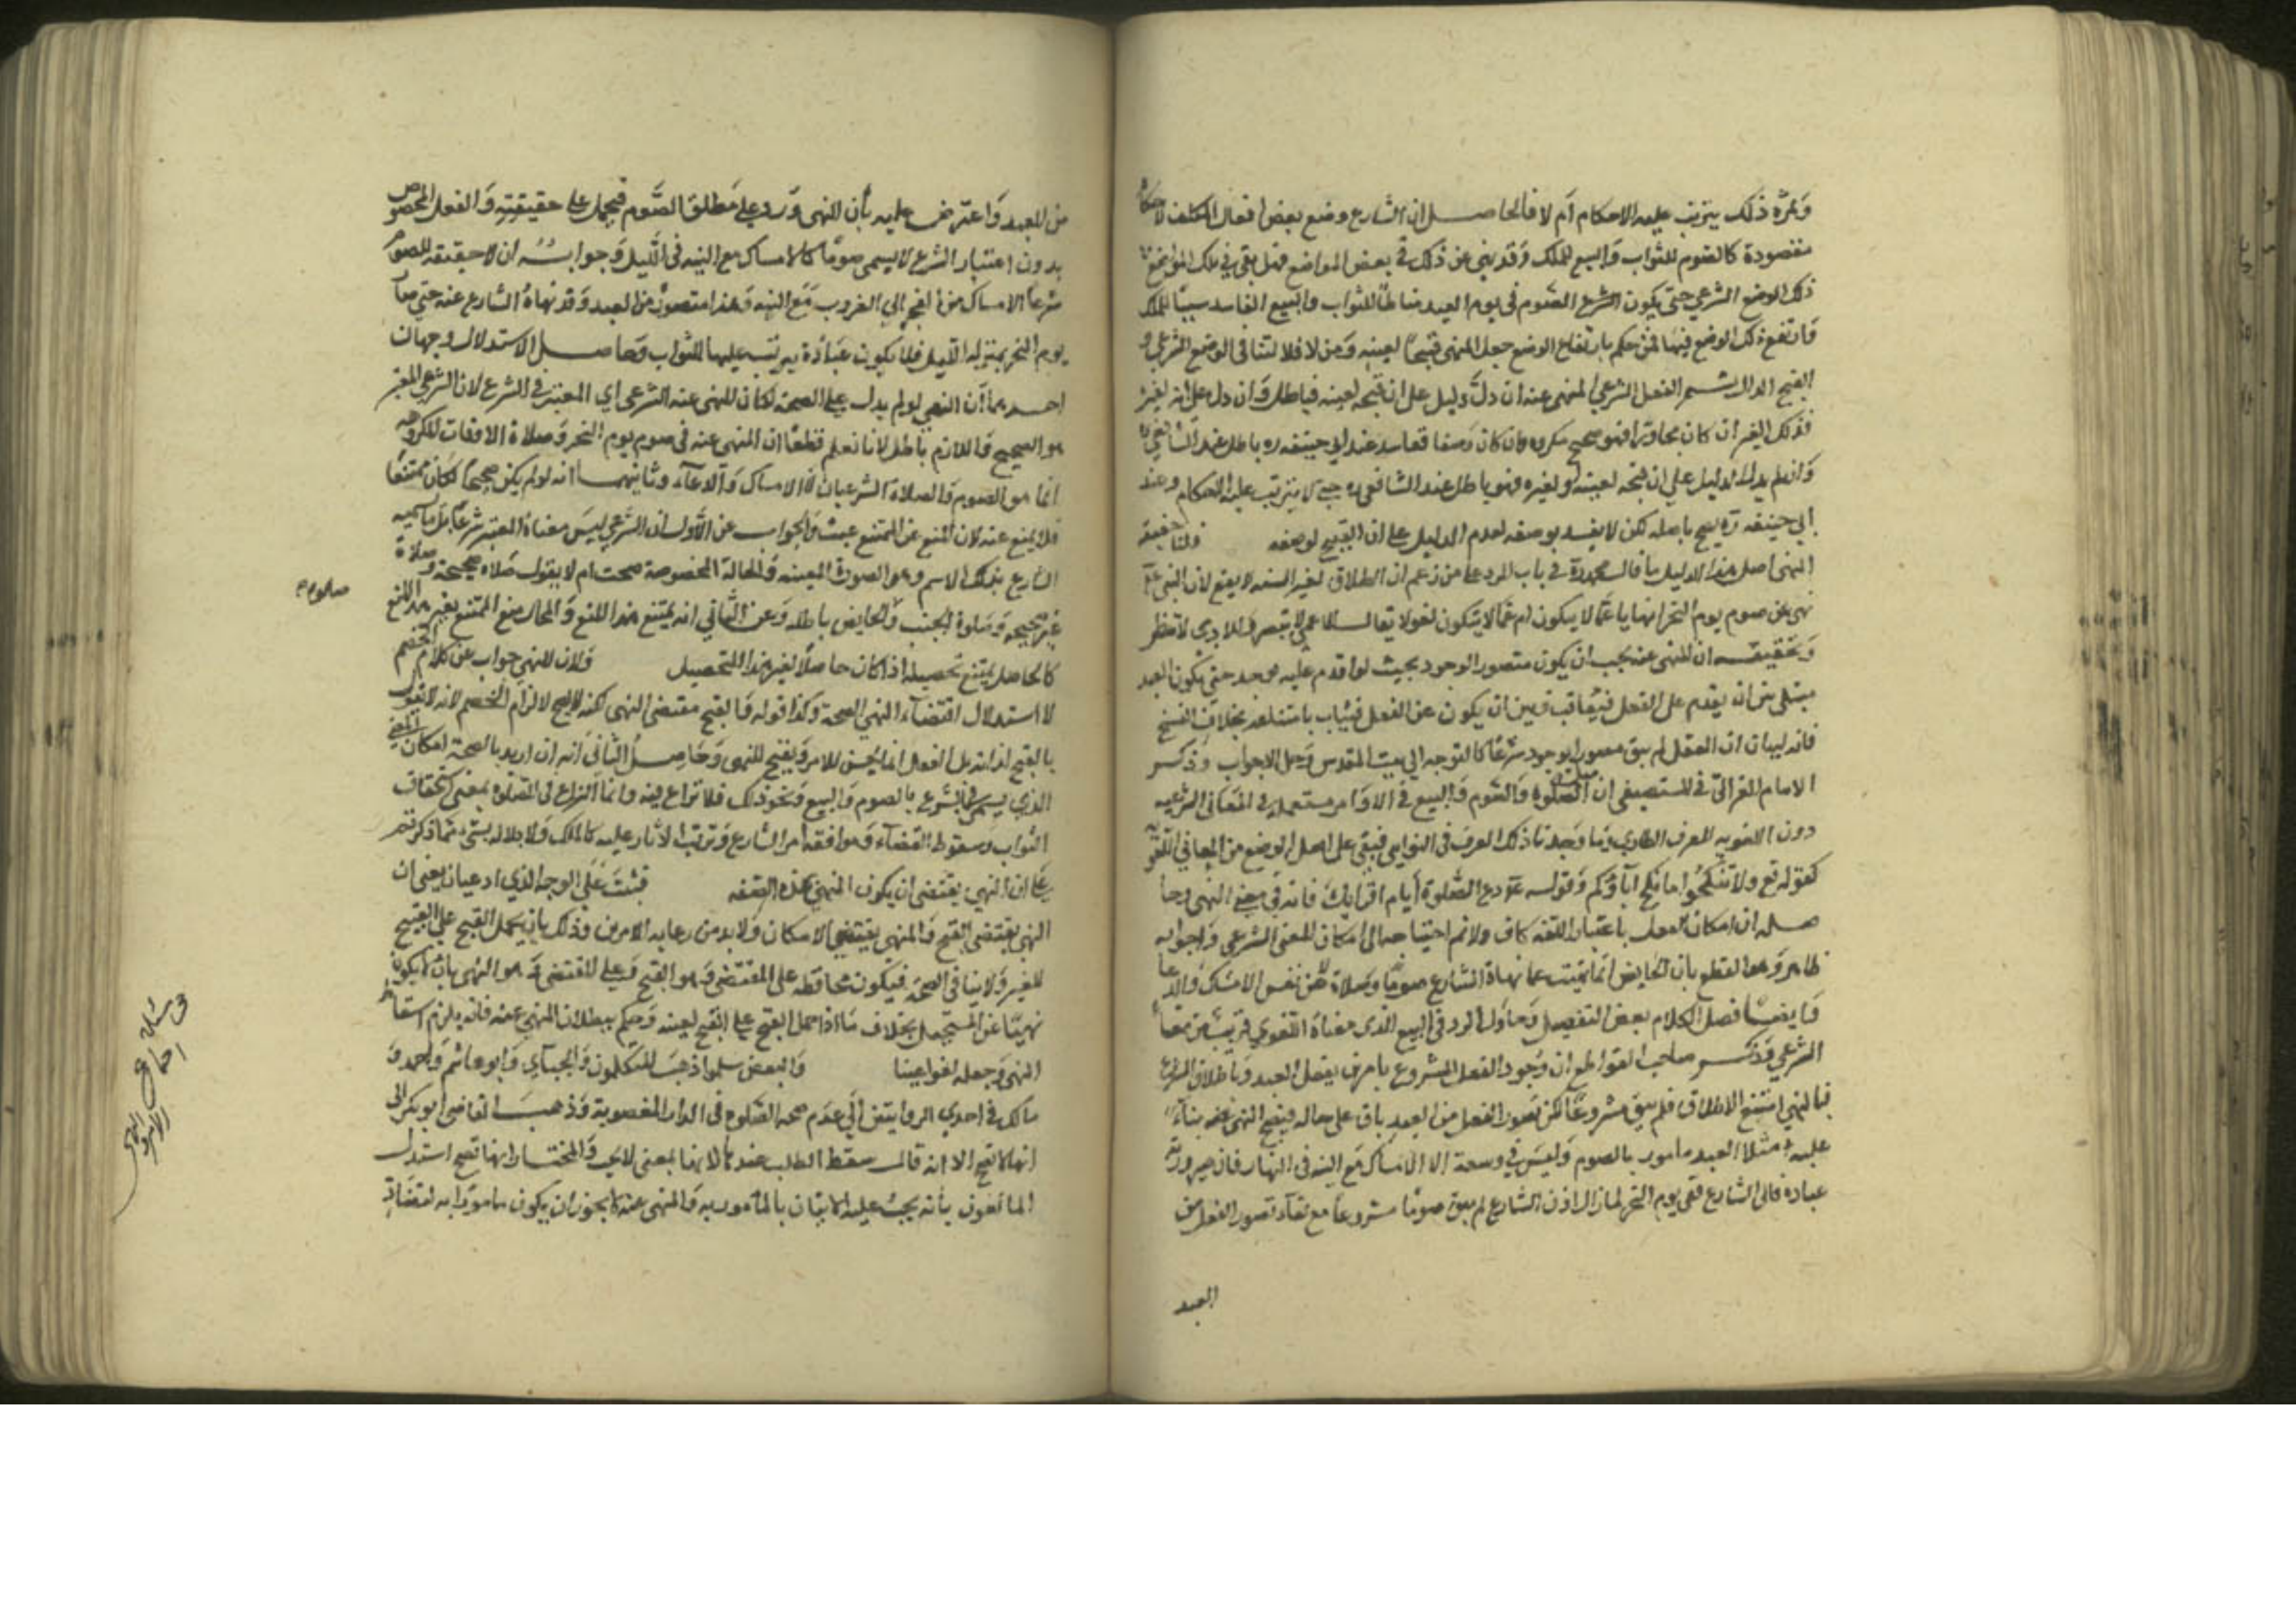 وثمرة ذلك يترتب عليه الاحكام ام لا فالحاصل ان الشارع وضع بعض افعال المكلف لاحكام
مقصودة كالصوم للثواب والبيع للملك وقد نهى عن ذلك في بعض المواضع فهل بقي في تلك المواضع
ذلك الوضع الشرعي حتى يكون الصوم في يوم العيد مناطا للثواب والبيع الفاسد سببا للملك
وارتفع ذلك الوضع فيها فمن حكم بارتفاع الوضع جعل المنهي قبيحا لعينه ومن لا فلا لتنافي الوضع الشرعي و
القبح الذاتي ثم الفعل الشرعي المنهي عنه ان دل دليل على ان قبحه لعينه فباطل وان دل على انه لغيره
فذلك الغير ان كان مجاورا فهو صحيح مكروه وان كان وصفا ففاسد عند ابي حنيفة ره باطل عند الشافعي ره
وان لم يدل الدليل على ان قبحه لعينه او لغيره فهو باطل عند الشافعي ره حتى لا يترتب عليه الاحكام وعند
ابي حنيفة ره يصح باصله لكن لا يفسد بوصفه لعدم الدليل على ان القبح لوصفه ولنا حقيقة
النهي اصل هذا الدليل ما قال محمد ره في باب الرد على من زعم ان الطلاق لغير السنة لا يقع لان النبي ع م
نهى عن صوم يوم النحر انهانا عما لا يتكون ام عما يتكون لغو لا يقال للاعمى لا تبصر وللادمي لا تطر
وتحقيقه ان المنهي عنه يجب ان يكون متصور الوجود بحيث لو اقدم عليه يوجد حتى يكون العبد
مبتلى بين ان يقدم على الفعل فيعاقب وبين ان يكف عن الفعل فيثاب بامتناعه بخلاف النسخ
فانه لبيان ان الفعل لم يبق متصور الوجود شرعا كالتوجه الى بيت المقدس وحل الاخوات وذكر
الامام الغزالي في المستصفى ان الصلوة والصوم والبيع في الاوامر مستعملة في المعاني الشرعية
دون اللغوية للعرف الطاري وما وجدنا ذلك العرف في النواهي فيبقى على اصل الوضع من المعاني اللغوية
كقوله تع ولا تنكحوا ما نكح اباؤكم وقوله ع م دعي الصلوة ايام اقرائك فانه في معنى النهي وحا
صله ان امكان الفعل باعتبار اللغة كاف ولا نم احتياجه الى امكان المعنى الشرعي وجوابه
ظاهر وهو القطع بان الحايض انما نهيت عما سماه الشارع صوما وصلاة لا عن نفس الامساك والدعا
وايضا فصل الكلام بعض التفصيل وحاول الرد في البيع الذي معناه اللغوي قريب من معناه
الشرعي وذكر صاحب القواطع ان وجود الفعل المشروع بامرين بفعل العبد وباطلاق الشرع
فبالنهي امتنع الاطلاق فلم يبق مشروعا لكن تصور الفعل من العبد باق على حاله فيصح النهي عنه بناء
عليه مثلا العبد مامور بالصوم وليس في وسعه الا الامساك مع النية في النهار فاما صيرورته
عبادة فالى الشارع ففي يوم النحر لما زال اذن الشارع لم يبق صوما مشروعا مع بقاء تصور الفعل من
العبد
من العبد واعترض عليه بان النهي ورد على مطلق الصوم فيحمل على حقيقته والفعل المخصوص
بدون اعتبار الشرع لا يسمى صوما كالامساك مع النية في الليل وجوابه ان لا حقيقة للصوم
شرعا الا الامساك من الفجر الى الغروب مع النية وهذا متصور من العبد وقد نهاه الشارع عنه حتى صار
يوم النحر بمنزلة الليل فلا يكون عبادة يترتب عليها الثواب وحاصل الاستدلال وجهان
احدهما ان النهي لو لم يدل على الصحة لكان المنهي عنه غير الشرعي اي المعتبر في الشرع لان الشرعي المعتبر
هو الصحيح واللازم باطل لانا نعلم قطعا ان المنهي عنه في صوم يوم النحر وصلاة الاوقات المكروهة
انما هو الصوم والصلاة الشرعيان لا الامساك والدعاء وثانيهما انه لو لم يكن صحيحا لكان ممتنعا
فلا يمنع عنه لان المنع عن الممتنع عبث والجواب عن الاول ان الشرعي ليس معناه المعتبر شرعا بل ما يسميه
الشارع بذلك الاسم وهو الصورة المعينة والحالة المخصوصة صحت ام لا يقول صلاة صحيحة وصلاة
غير صحيحة وصلوة الجنب والحايض باطلة وعن الثاني انه يمتنع بهذا المنع والمحال منع الممتنع بغير هذا المنع
كالحاصل يمتنع تحصيله اذا كان حاصلا لغير هذا التحصيل ولان النهي جواب عن كلام الخصم
لا استدلال اقتضاء النهي الصحة وكذا قوله فالقبح مقتضى النهي لكنه لا يصح لالزام الخصم لانه لا يقول
بالقبح لذاته بل الفعل انما يحسن للامر ويقبح للنهي وحاصل الثاني انه ان اريد بالصحة امكان المعنى
الذي يسمى في الشرع بالصوم والبيع ونحو ذلك فلا نزاع فيه وانما النزاع في الصلوة بمعنى استحقاق
الثواب وسقوط القضاء وموافقة امر الشارع وترتب الاثار عليه كالملك ولا دلالة بشيء مما ذكرتم
على ان النهي يقتضي ان يكون المنهي بهذه الصفة فيثبت على الوجه الذي ادعيناه يعنى ان
النهي يقتضي القبح والمنهي يقتضي الامكان ولا بد من رعاية الامرين وذلك بان يحمل القبح على القبح
للغير ولا ينافي الصحة فيكون محافظة على المقتضى وهو القبح وعلى المقتضي وهو النهي بان لا يكون
نهيا عن المستحيل بخلاف ما اذا حمل القبح على القبح لعينه وحكم ببطلان المنهي عنه فانه يلزم اسقاط
النهي وجعله لغوا عبثا والبعض سلموا ذهب المتكلمون والجبائي وابو هاشم واحمد و
مالك في احدى الروايتين الى عدم صحة الصلوة في الدار المغصوبة وذهب القاضي ابو بكر الى
انها لا تصح الا انه قال سقط الطلب عندها لا بها بمعنى لاي والمختار انها تصح استدل
المانعون بانه يجب عليه الاتيان بالمامور به والمنهي عنه لا يجوز ان يكون مامورا به لتضاد